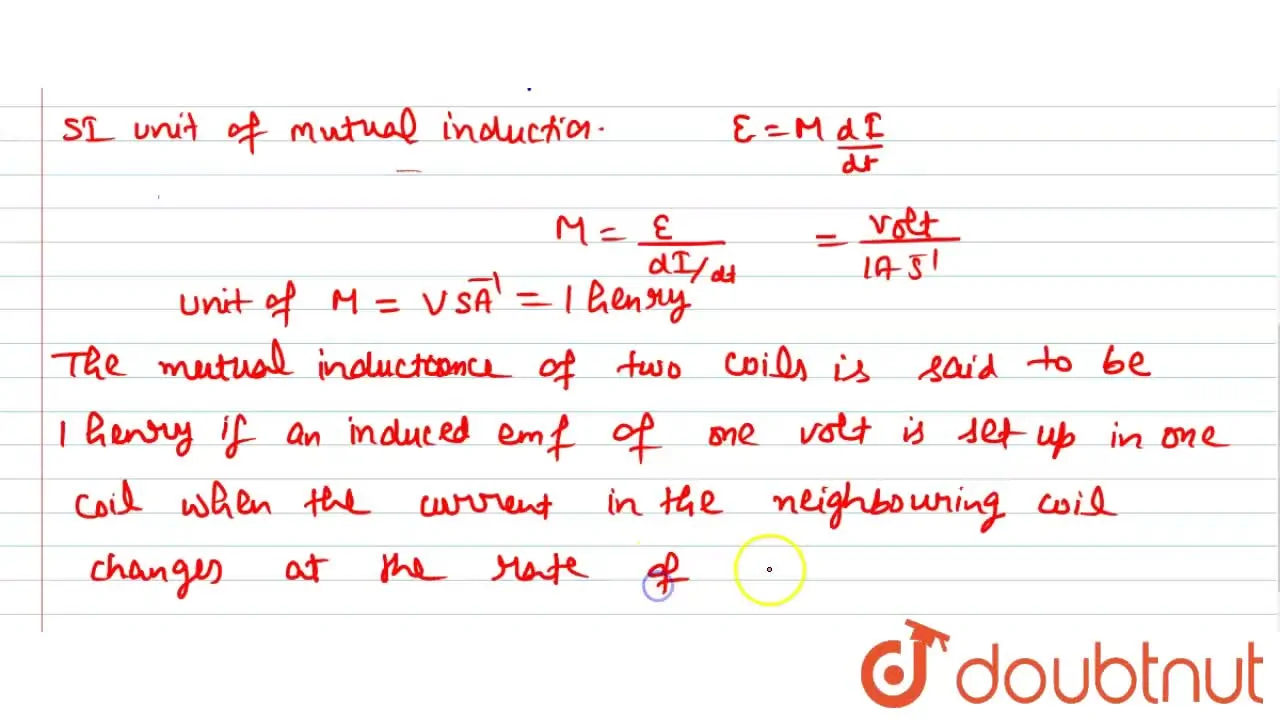 SI unit of mutual induction. ε = M dI/dt
M = ε/(dI/dt) = Volt/1A S⁻¹
unit of M = VSA⁻¹ = 1 henry
The mutual inductance of two coils is said to be
1 henry if an induced emf of one volt is set up in one
coil when the current in the neighbouring coil
changes at the rate of
doubtnut